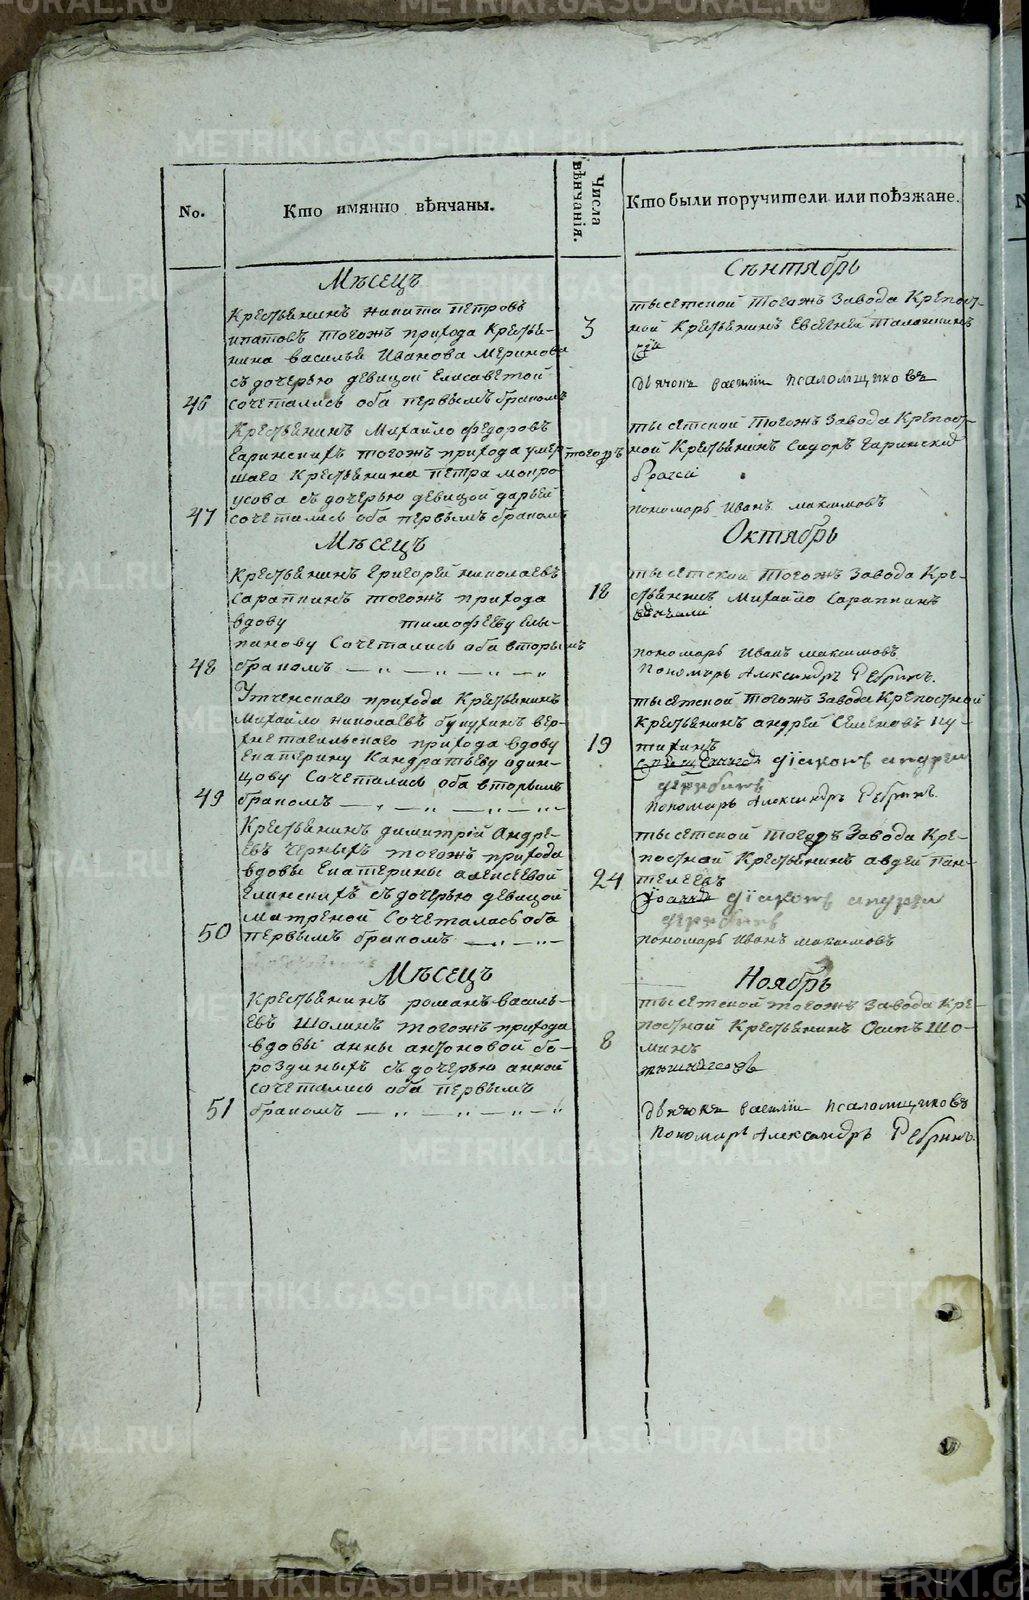 No.
Кто имянно вѣнчаны.
Числа вѣнчанія.
Кто были поручители или поѣзжане.
Мѣсецъ
Сѣнтябрь
Крестьянинъ никита петровъ
ипатовъ тогожъ прихода Крестья-
нина василья Иванова Меринова
съ дочерью девицой Елисаветой
46 сочетались оба первымъ бракомъ
3
тысетской Тогожъ Завода Крепост-
ной Крестьянинъ Евсегней
дьячокъ василiи псаломщиковъ
Крестьянинъ Михайло федоровъ
Гаринскихъ тогожъ прихода умер
шаго Крестьянина петра мокро-
усова съ дочерью девицой дарьей
47 сочетались оба первымъ бракомъ
тогожъ
тысетской Тогожъ Завода Крепост-
ной Крестьянинъ Сидоръ Гаринскихъ
пономарь Иванъ максимовъ
Мѣсецъ
Октябрь
Крестьянинъ Григорей николаевъ
Сарапкинъ тогожъ прихода
вдову тимофееву
панову Сочетались оба вторымъ
48 бракомъ
18
тысетской Тогожъ Завода Кре-
стьянинъ Михайло Сарапкинъ
пономарь Иванъ максимовъ
Пономарь Александръ Ребринъ.
прихода Крестьянинъ
Михайло николаевъ вер-
хнетагильскаго прихода вдову
Екатерину Кондратьеву один-
цову Сочетались оба вторымъ
49 бракомъ
19
тысетской тогожъ Завода Крепостной
Крестьянинъ андрей Семеновъ пу-
тилинъ
дiаконъ андреи
Пономарь Александръ Ребринъ.
Крестьянинъ димитрiй Андре-
евъ Черныхъ тогожъ прихода
вдовы Екатерины алексеевой
Елинскихъ съ дочерью девицой
Матреной Сочеталась оба
50 первымъ бракомъ
24
тысетской Тогожъ Завода Кре-
постной Крестьянинъ авдей пан-
телеевъ
дiаконъ андреи
пономарь Иванъ максимовъ
Мѣсецъ
Ноябрь
Крестьянинъ романъ василь-
евъ Шолинъ тогожъ прихода
вдовы анны антоновой бо-
роздиныхъ съ дочерью анной
сочетались оба первымъ
51 бракомъ
8
тысетской тогожъ Завода Кре-
постной Крестьянинъ Осипъ Шо-
линъ
дьячокъ василiи псаломщиковъ
Пономарь Александръ Ребринъ.
METRIKI.GASO-URAL.RU